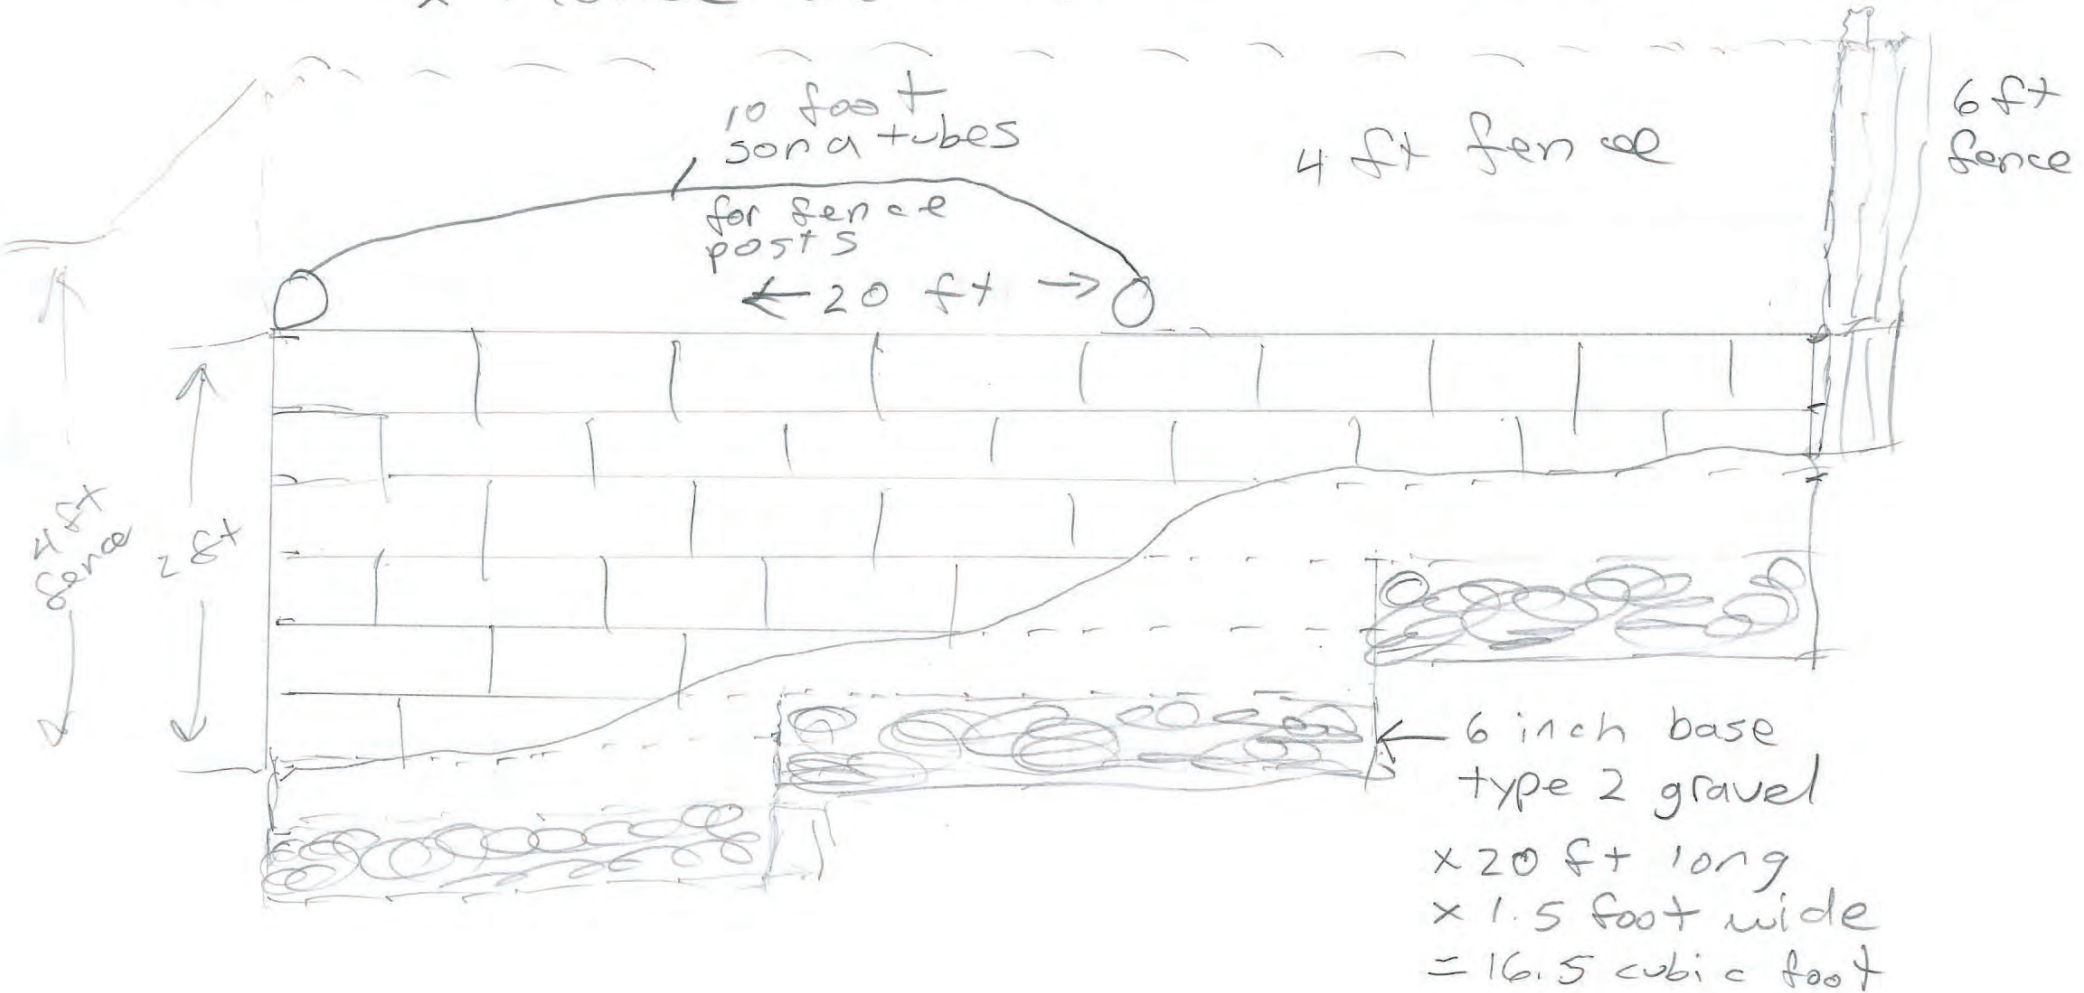 10 foot
sona tubes
for fence
posts
← 20 ft →
4 ft fence
6 ft
fence
4 ft
fence
2 ft
6 inch base
type 2 gravel
x 20 ft long
x 1.5 foot wide
= 16.5 cubic foot